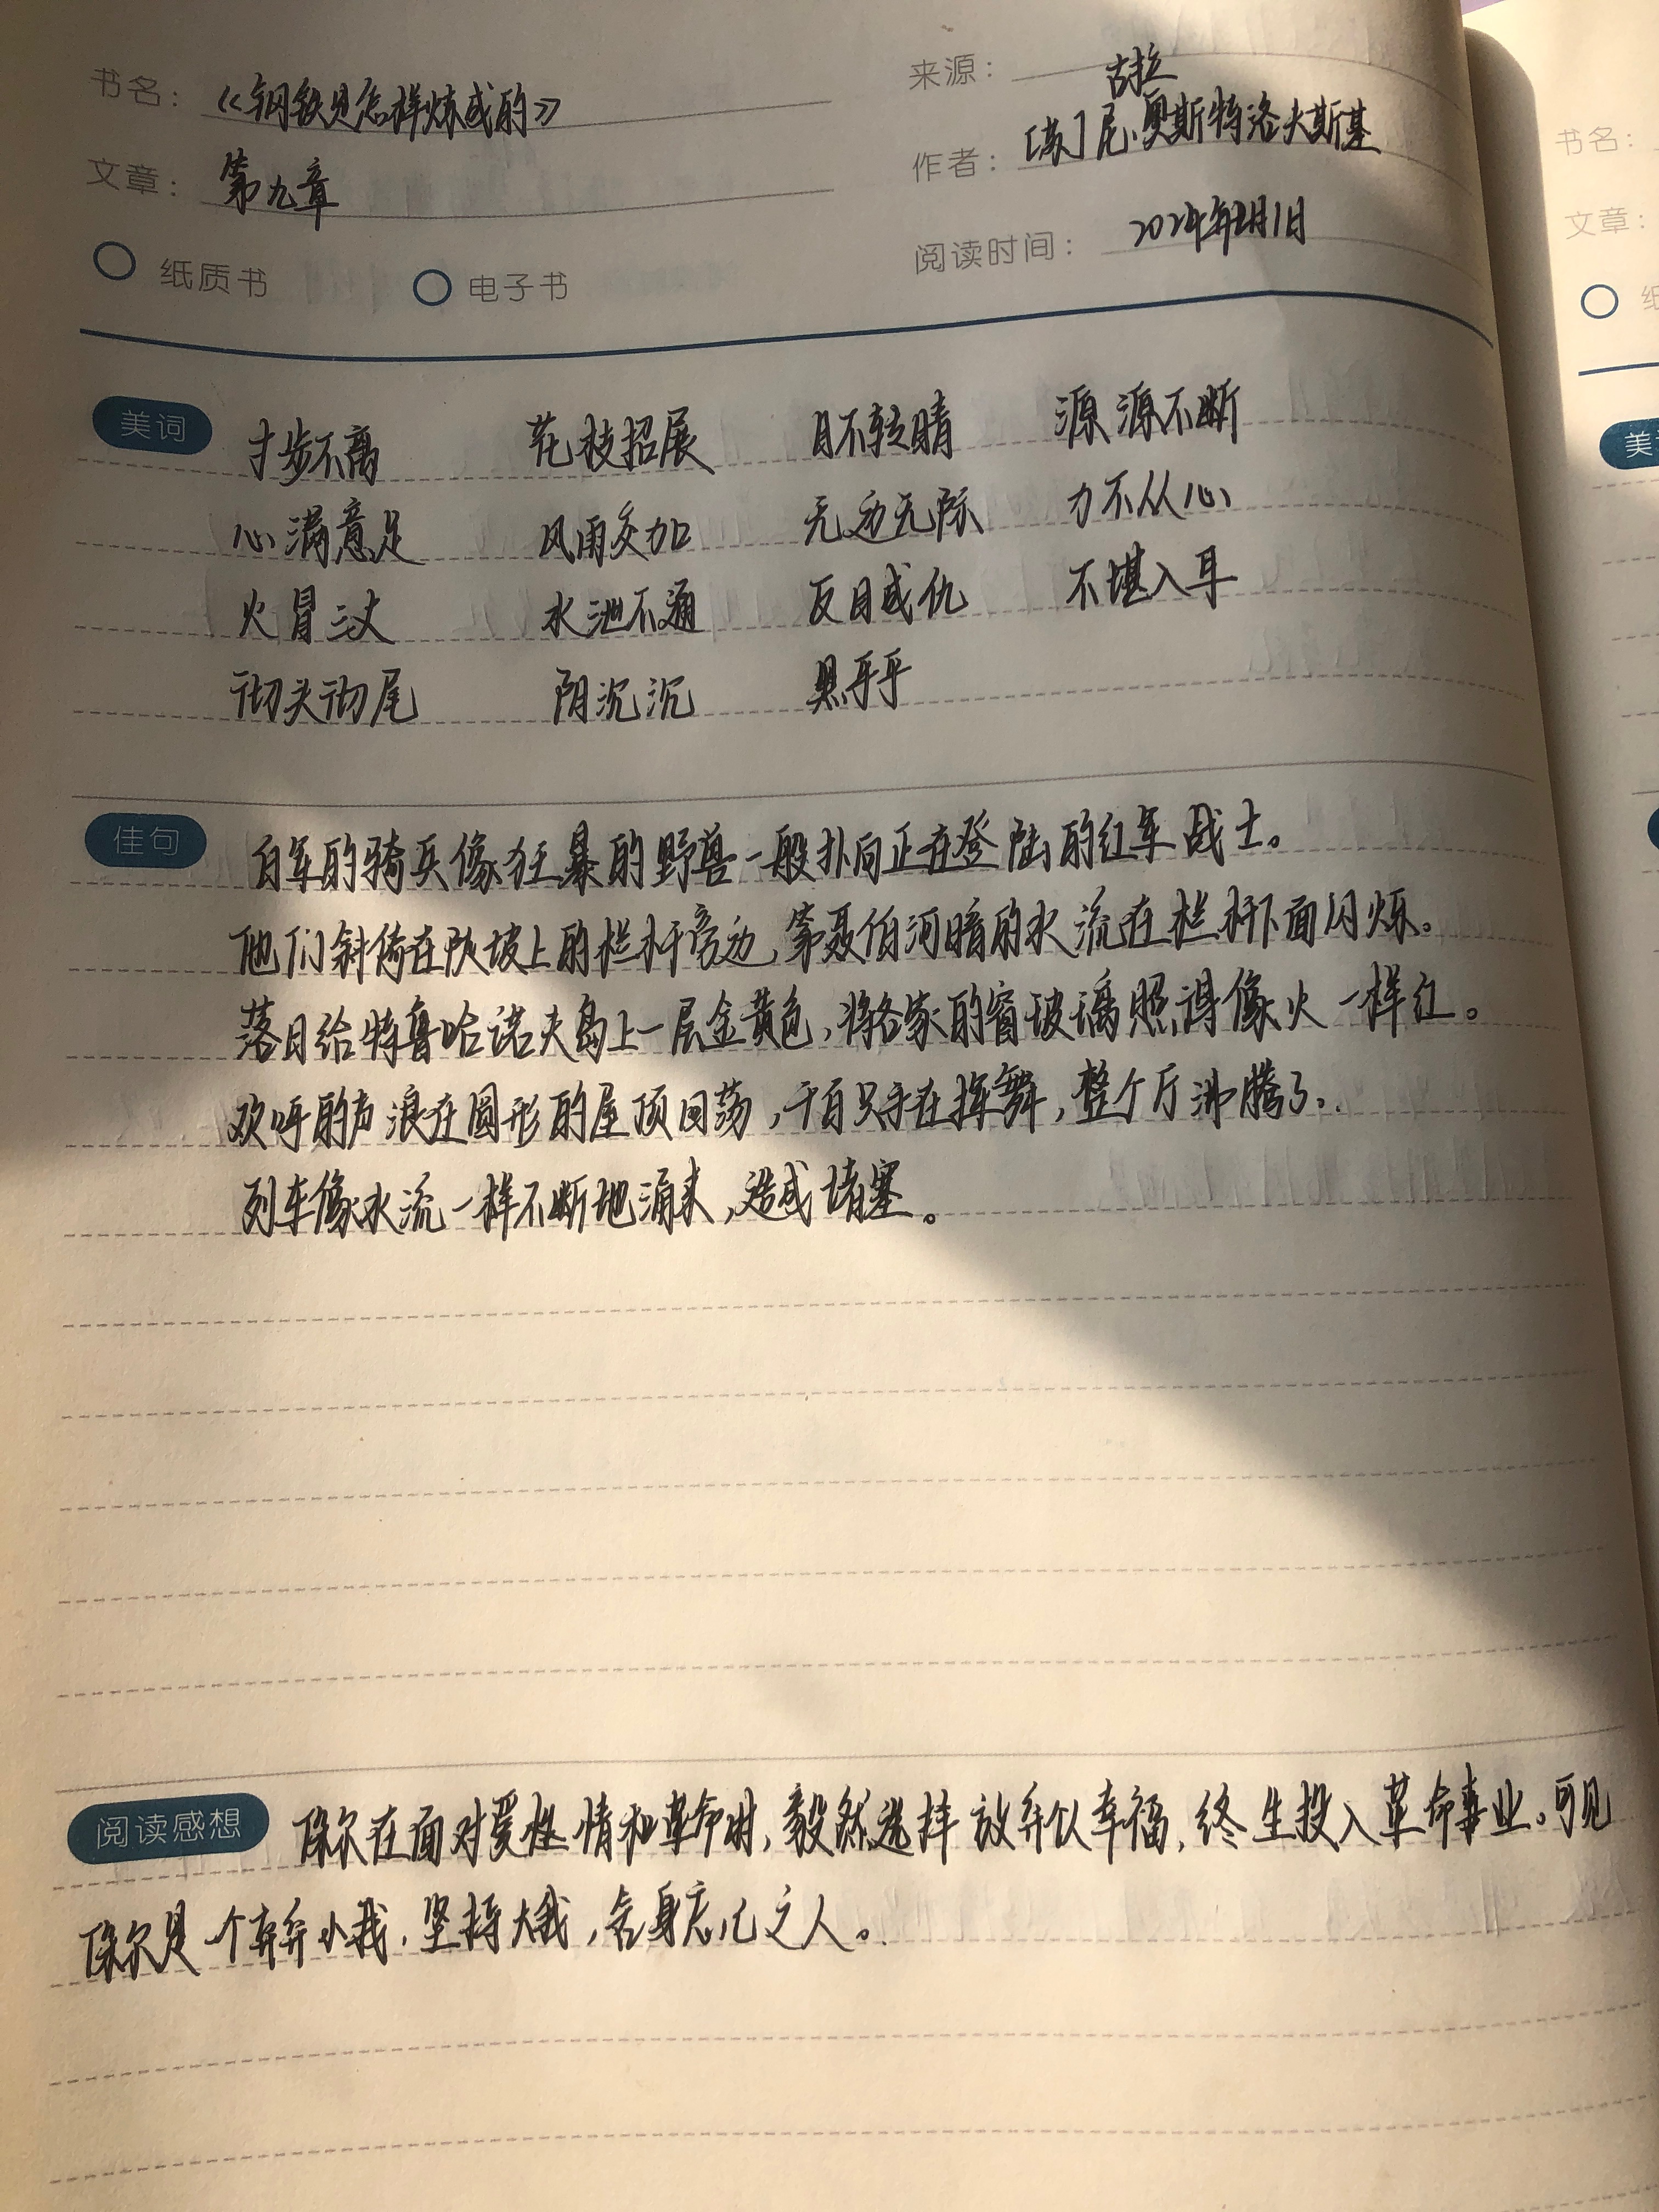 书名：《钢铁是怎样炼成的》
来源：
古拉
文章：第九章
作者：[苏]尼.奥斯特洛夫斯基
纸质书 电子书
阅读时间：2024年2月1日
美词 寸步不离 花枝招展 目不转睛 源源不断
心满意足 风雨交加 无边无际 力不从心
火冒三丈 水泄不通 反目成仇 不堪入耳
彻头彻尾 阴沉沉 黑乎乎
佳句 白军的骑兵像狂暴的野兽一般扑向正在登陆的红军战士。
他们斜倚在陡坡上的栏杆旁边,第聂伯河暗的水流在栏杆下面闪烁。
落日给特鲁哈诺夫岛上一层金黄色,将各家的窗玻璃照得像火一样红。
欢呼的声浪在圆形的屋顶回荡,千百只手在挥舞,整个厅沸腾了.
列车像水流一样不断地涌来,造成堵塞。
阅读感想 保尔在面对爱情和革命时,毅然选择放弃幸福,终生投入革命事业。可见
保尔是一个弃小我,坚持大我,舍身忘己之人。
书名：
文章：